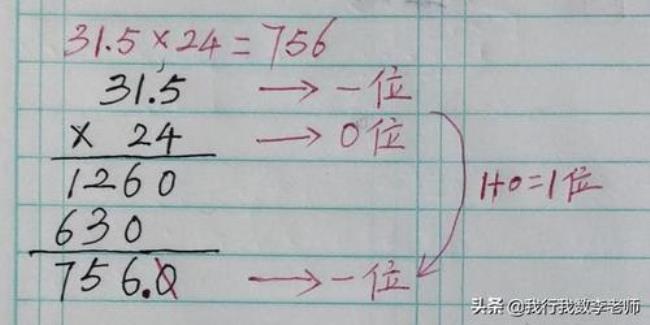 31.5×24=756
31.5 → 一位
× 24 → 0位
1260
1+0=1位
630
756.0 → 一位
头条 @我行我数李老师